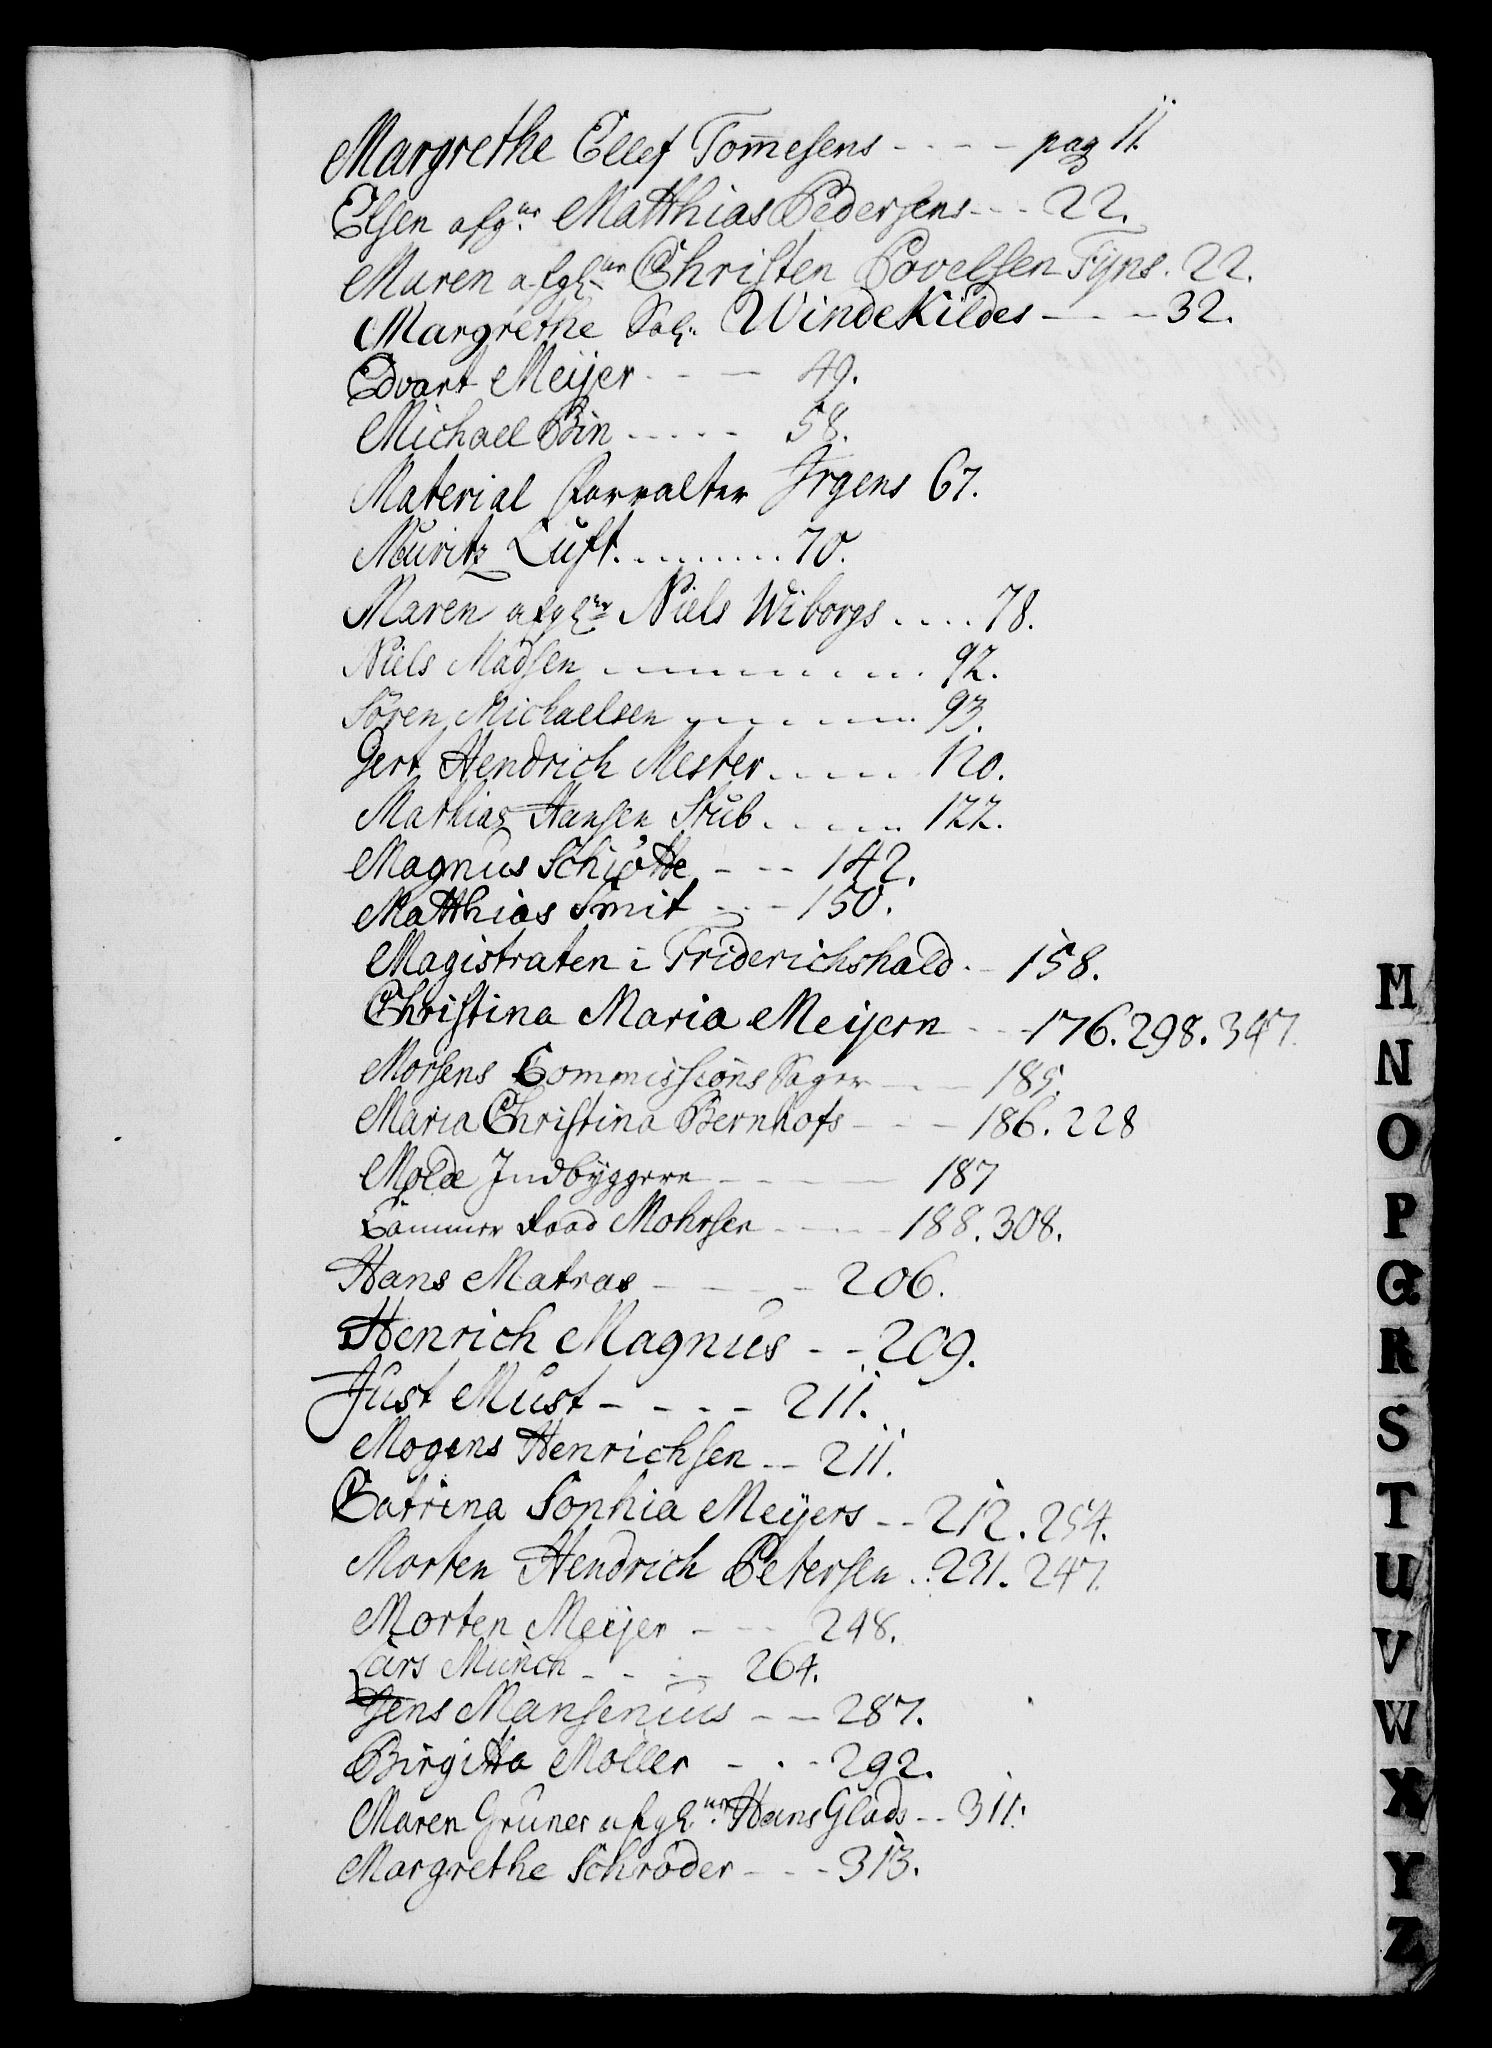 Margrethe Ellef Tom̄esens - - - - pag 11.
Elsen afg.ne Matthias Pedersens - - - 22.
Maren afgl.ne Christen Povelsen Fÿns. 22.
Margrethe Sal. Windekildes - - - 32.
Edvart Meijer - - - 49.
Michael Bin - - - - - 58.
Material Forvalter Irgens 67.
Mauritz Luft. . . . . . . . . 70.
Maren afgl.ne Niels Wiborgs . . . . 78.
Niels Madsen . . . . . . . . . . 92.
Sören Michaelsen . . . . . . . 93.
Gert Hendrich Mester . . . . . 120.
Mathias Hansen Stub . . . . . 122.
Magnus Schiötte - - - 142.
Matthias Smit - - - 150.
Magistraten i Friderichshald. - 158.
Christina Maria Meijern - - - 176. 298. 347.
Morsens Commissions Sager - - - 185.
Maria Christina Bernhofs - - - 186. 228
Molde Indbyggere - - - - - 187
Cammer Raad Mohrsen - - - - 188. 308.
Hans Matras - - - - 206.
Henrich Magnus - - 209.
Just Must - - - - 211.
Mogens Henrichsen - - 211.
Catrina Sophia Meÿers - - 212. 254.
Morten Hendrich Petersen . . 231. 247.
Morten Meijer - - - 248.
Lars Münch - - - - 264.
Jens Mansenius - - 287.
Birgitta Möller - - - 292.
Maren Gruner afgl.ne Hans Glads - - 311.
Margrethe Schröder - - - 313.
M
N
O
P
Q
R
S
T
U
V
W
X
Y
Z